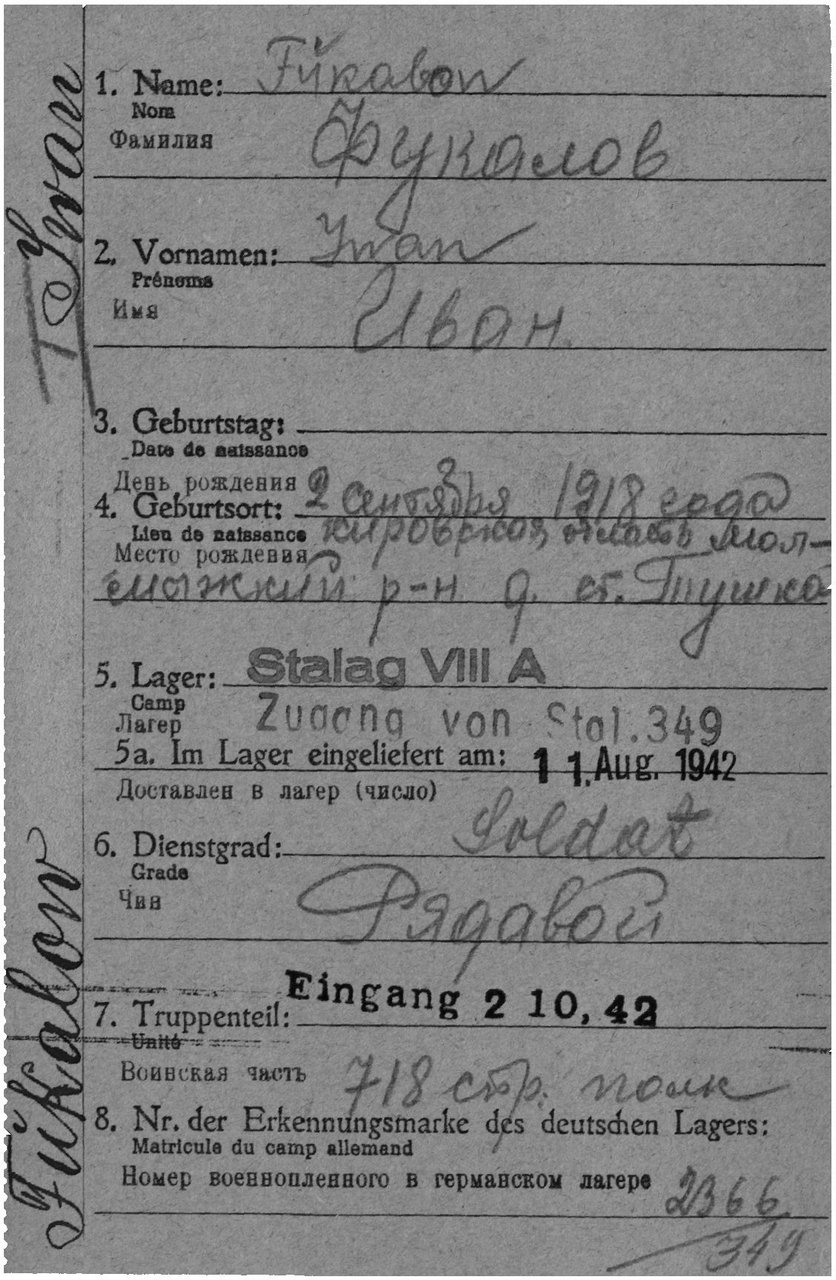 1. Name: Fŭkalow
Nom
Фамилия Фукалов
2. Vornamen: Iwan
Prénoms
Имя Иван.
3. Geburtstag:
Date de naissance
День рождения 2 сентября 1918 года
4. Geburtsort:
Lieu de naissance Кировская область Мол-
Место рождения
мыжский р-н д. ст. Тушка
5. Lager: Stalag VIII A
Camp
Лагер Zugang von Stal. 349
5a. Im Lager eingeliefert am: 11. Aug. 1942
Доставлен в лагер (число)
6. Dienstgrad: Soldat
Grade
Чин Рядавой
Eingang 2 10, 42
7. Truppenteil:
Unité
Воинская часть 718 стр. полк
8. Nr. der Erkennungsmarke des deutschen Lagers:
Matricule du camp allemand
Номер военнопленного в германском лагере 2366
349
Fŭkalow Iwan